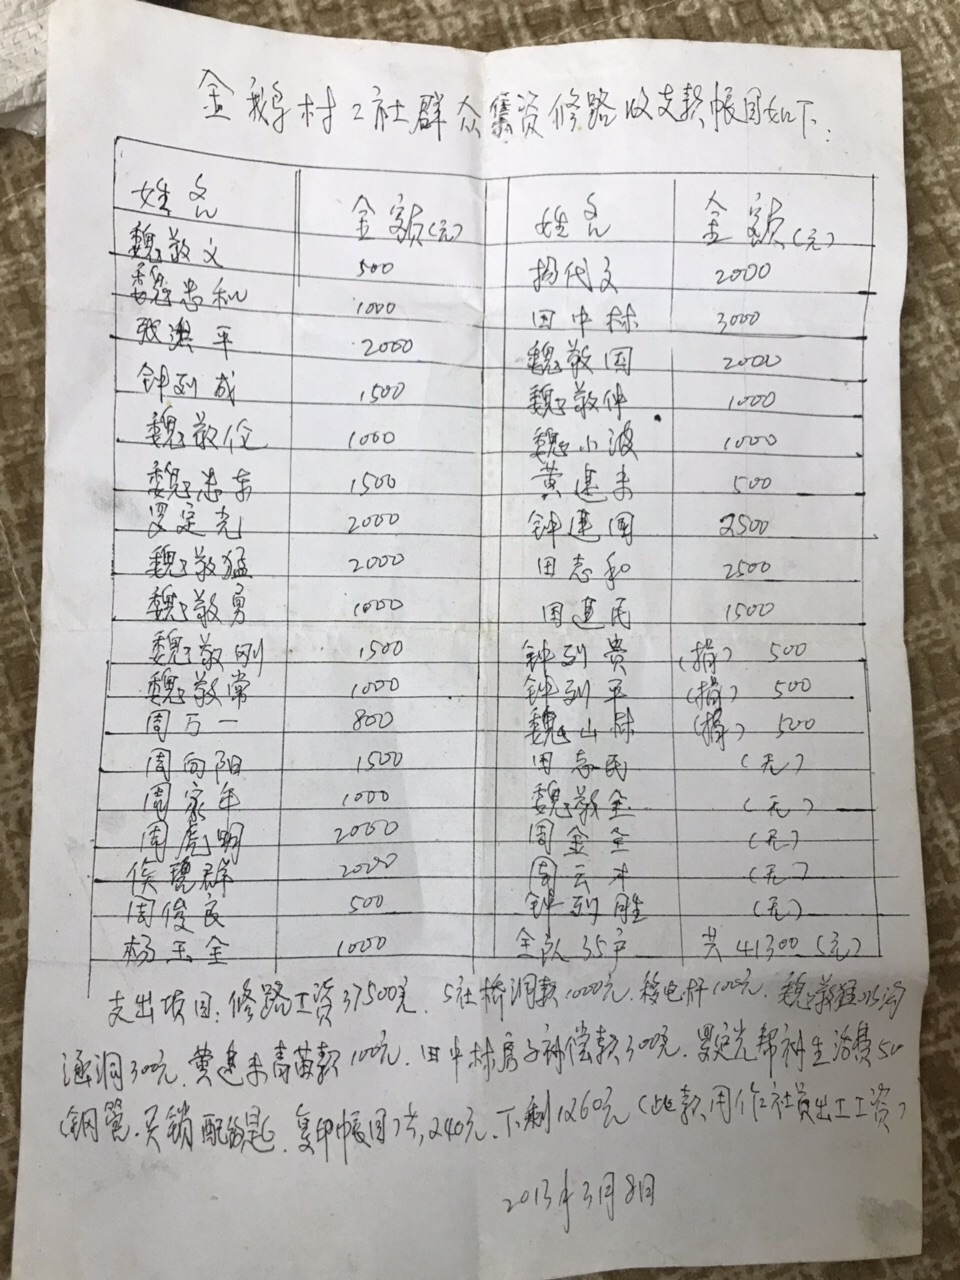 金鹅村2社群众集资修路收支款帐目如下:
姓名 金额(元) 姓名 金额(元)
魏敬文 500 杨代文 2000
魏忠和 1000 田中林 3000
张洪平 2000 魏敬国 2000
钟列成 1500 魏敬仲 1000
魏敬伦 1000 魏小波 1000
魏忠东 1500 黄建来 500
罗定光 2000 钟建国 2500
魏敬猛 2000 田志和 2500
魏敬勇 1000 周建民 1500
魏敬刚 1500 钟列贵 (捐) 500
魏敬常 1000 钟列平 (捐) 500
周万一 800 魏山林 (捐) 500
周向阳 1500 田志民 (无)
周家年 1000 魏敬全 (无)
周虎明 2000 周金全 (无)
侯琼群 2000 周云才 (无)
周俊良 500 钟列胜 (无)
杨玉金 1000 全队35户 共41300(元)
支出项目:修路工资37500元. 5社桥洞款1000元. 移电杆100元. 魏敬猛水沟
涵洞300元. 黄建来青苗款100元. 田中林房子补偿款300元. 罗定光帮补生活费50
(钢管. 买锁配钥匙. 复印帐目)共240元. 下剩1260元(此款用作社员出工工资)
2013年3月8日